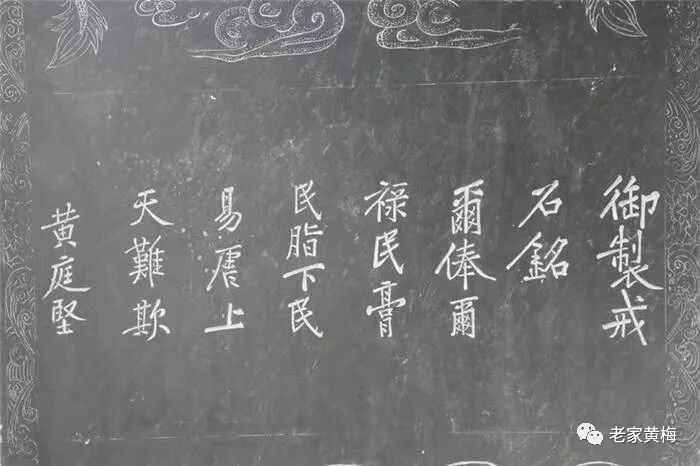 御製戒
石銘
爾俸爾
禄民膏
民脂下民
易虐上
天難欺
黄庭堅
老家黄梅